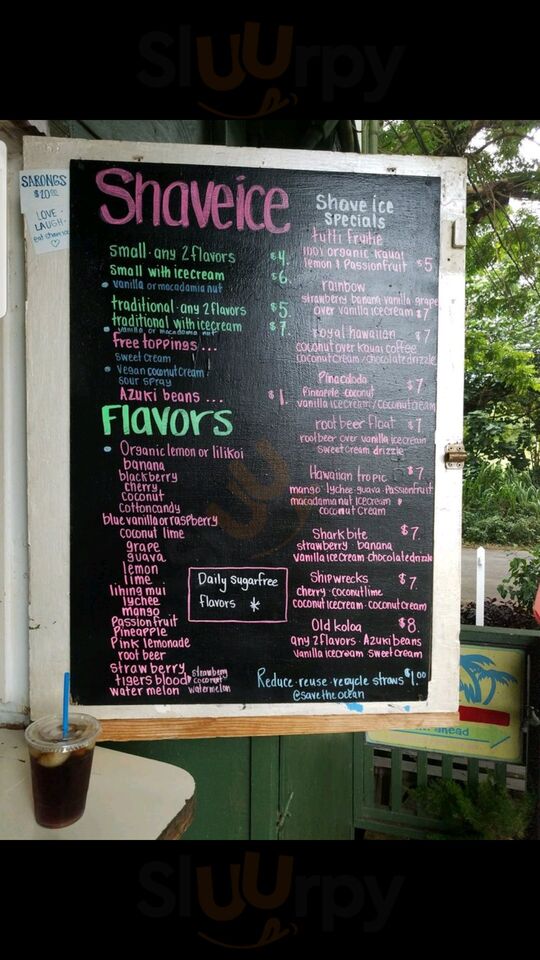 SluUrpy
SARONGS
$20.00
LOVE.
LAUGH.
eat shave ice
Shaveice
small·any 2 flavors $4.
small with icecream $6.
vanilla or macadamia nut
traditional·any 2 flavors $5.
traditional with icecream $7.
vanilla or macadamia nut
free toppings...
sweet cream
Vegan coconut cream
sour spray
AZUki beans ... $1.
Flavors
Organic lemon or lilikoi
banana
blackberry
cherry
coconut
cottoncandy
blue vanilla or raspberry
coconut lime
grape
guava
lemon
lime
lihing mui
lychee
mango
Passion fruit
Pineapple
Pink lemonade
root beer
strawberry
tigers blood strawberry coconut watermelon
water melon
Daily sugarfree
flavors *
Shave ice
specials
tutti fruitie
100% organic kauai
lemon & Passionfruit $5
rainbow
strawberry banana vanilla grape
over vanilla icecream $7
royal hawaiian $7
coconut over kauai coffee
coconut cream/chocolate drizzle
Pinacolada $7.
Pineapple·coconut
vanilla icecream/coconut cream
root beer float $7
rootbeer over vanilla icecream
sweet cream drizzle
Hawaiian tropic $7.
mango·lychee·guava·Passionfruit
macadamia nut icecream
coconut cream
Shark bite $7.
strawberry·banana
vanilla icecream·chocolatedrizzle
Shipwrecks $7.
cherry·coconutlime
coconut icecream·coconut cream
Old koloa $8.
any 2 flavors·AZuki beans
vanilla icecream sweet cream
Reduce·reuse·recycle straws $1.00
@save the ocean
ahead
SluUrpy